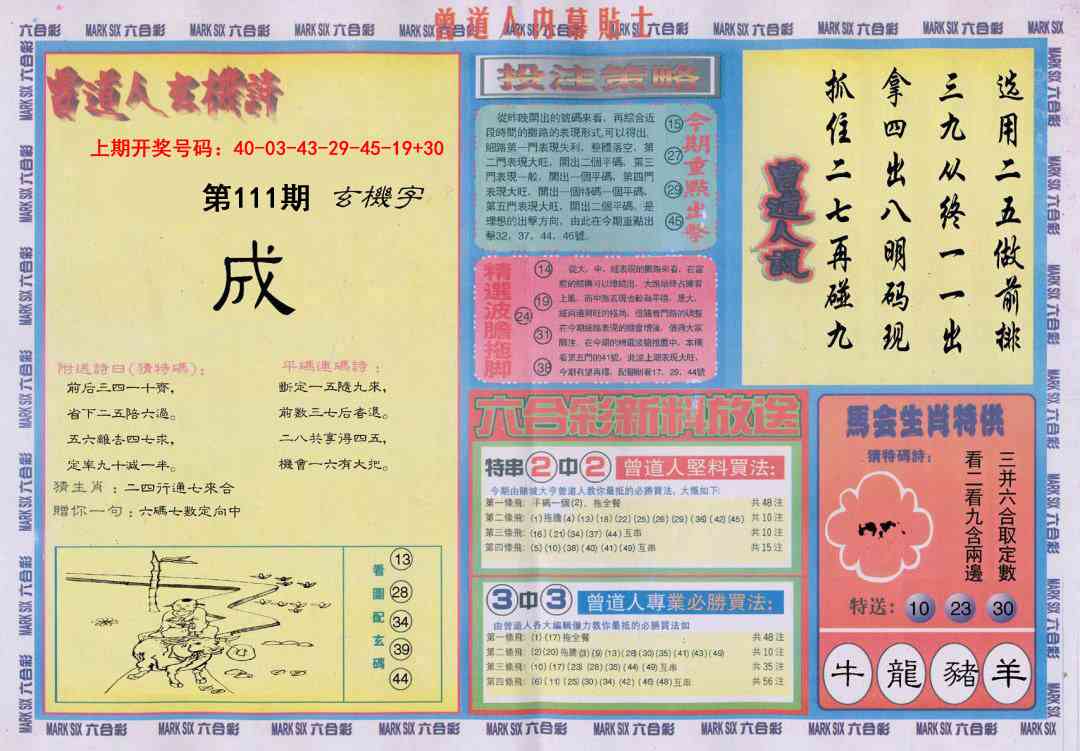 曾道人内幕貼士
六合彩 MARK SIX 六合彩 MARK SIX 六合彩 MARK SIX 六合彩 MARK SIX 六合彩 MARK SIX 六合彩 MARK SIX 六合彩 MARK SIX 六合彩 MARK SIX 六合彩 MARK SIX 六合彩 MARK SIX
曾道人玄機詩
上期开奖号码：40-03-43-29-45-19+30
第111期 玄機字
成
附送詩曰(猜特碼)：
前后三四一十齊，
省下二五陪六過。
五六難去四七求，
定率九十减一半。
平碼連碼詩：
斷定一五隨九來，
前數三七后春退。
二八共享得四五，
機會一六有大把。
猜生肖：二四行通七來合
贈你一句：六碼七數定向中
看圖配玄碼
13
28
34
39
44
投注策略
從昨晚開出的號碼來看，再綜合近
段時間的攤路的表現形式，可以得出，
細路第一門表現失利，整體落空，第
二門表現大旺，開出二個平碼，第三
門表現一般，開出一個平碼，第四門
表現大旺，開出一個特碼一個平碼，
第五門表現大旺，開出二個平碼，是
理想的出擊方向，由此在今期重點出
擊32，37，44，46號。
15
27
29
45
今期重點出擊
精選波膽拖脚
14
19
24
31
38
曾道人說
选用二五做前排
三九从终一一出
拿四出八明码现
抓住二七再碰九
六合彩新料放送
特串②中② 曾道人堅料買法：
今期由賭城大亨曾道人教你最抵的必勝買法，大概如下：
第一條飛：平碼一個(2)，拖全餐 共48注
第二條飛：(1)拖膽(4)(13)(18)(22)(25)(26)(29)(36)(42)(45) 共10注
第三條飛：(16)(21)(34)(37)(44)互串 共10注
第四條飛：(5)(10)(38)(40)(41)(49)互串 共15注
③中③ 曾道人專業必勝買法：
由曾道人各大編輯傾力教你最抵的必勝買法如
第一條飛：(1)(17)拖全餐 共48注
第二條飛：(2)(20)拖膽(3)(9)(13)(28)(30)(35)(41)(43)(49) 共10注
第三條飛：(10)(17)(23)(28)(36)(44)(49)互串 共35注
第四條飛：(6)(11)(25)(30)(34)(42)(46)(48)互串 共56注
馬会生肖特供
猜特碼詩：
三并六合取定數
看二看九含兩邊
特送：10 23 30
牛 龍 豬 羊
MARK SIX 六合彩 MARK SIX 六合彩 MARK SIX 六合彩 MARK SIX 六合彩 MARK SIX 六合彩 MARK SIX 六合彩 MARK SIX 六合彩 MARK SIX 六合彩 MARK SIX 六合彩 MARK SIX